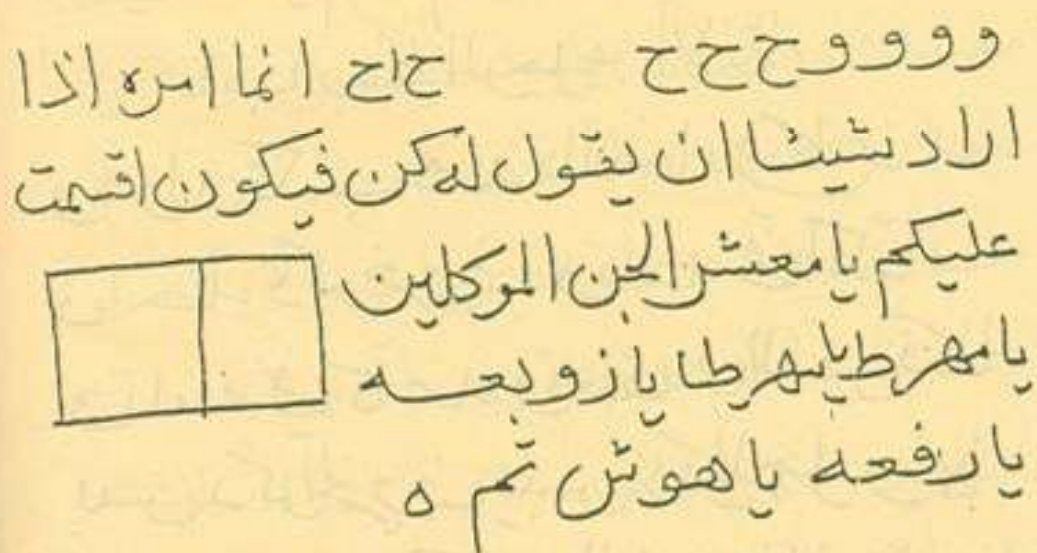 و و و و ح ح ح
ح اح انما امره اذا
اراد شيئا ان يقول له كن فيكون اقسمت
عليكم يا معشر الجن الموكلين
يا مهرط يا بهرطا يا زوبعه
يا رفعه يا هوش تم ه